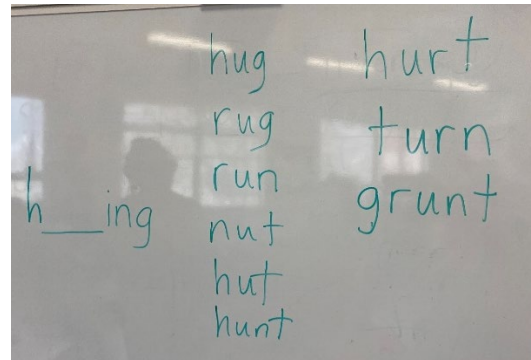 h__ing
hug
rug
run
nut
hut
hunt
hurt
turn
grunt